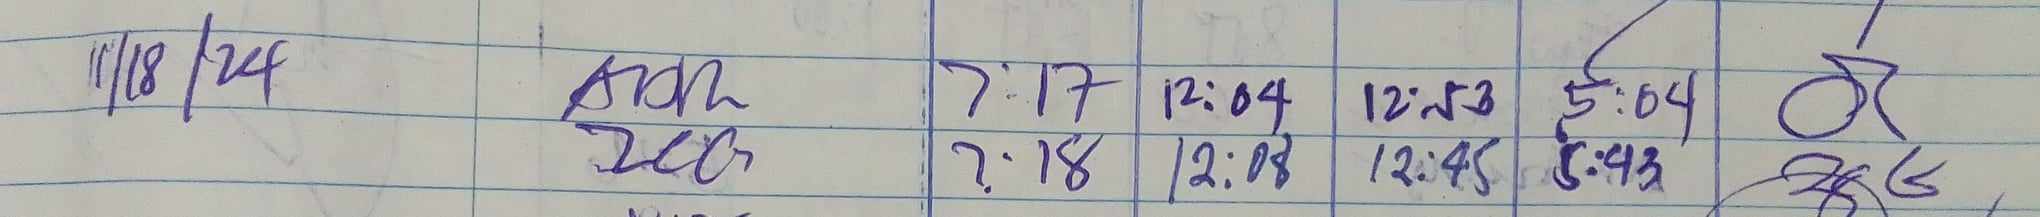 11/18/24 7:17 12:04 12:53 5:04
7:18 12:08 12:45 5:43